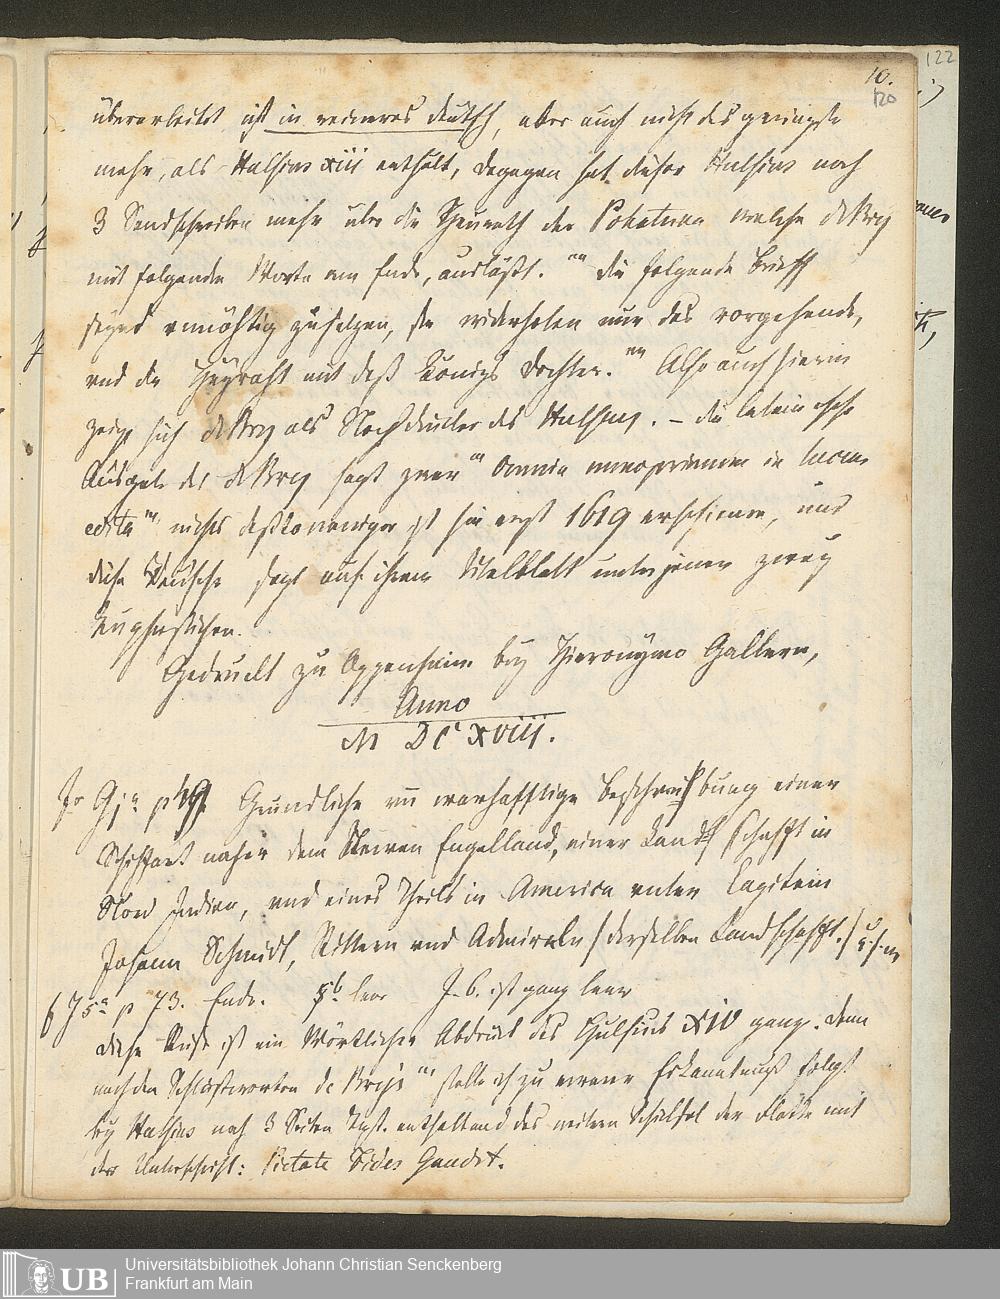 122
10.
120
überarbeitet ist in reineres deutsch, aber auch nicht das geringste
mehr, als Hulsius xiii enthält, dagegen hat dieser Hulsius noch
3 Sendschreiben mehr über die Heurath der Pokatuna welche de Bry
mit folgenden Worte am Ende, ausläßt. "" die folgende Brieff
seynd vnnöhtig zusetzen, sie widerholen nur das vorgehende,
vnd die Heyraht mit deß Königs Dochter."" Also auch hierin
zeigt sich de Bry als Nachdrucker des Hulsius. – die lateinische
Ausgabe des de Bry sagt zwar "" Omnia nunc primum in lucem
edita "" nichts destoweniger ist sie erst 1619 erschienen, und
diese Deutsche sagt auf ihrem Titelblatt unter jenen zwey
Kupferstichen.
Gedruckt zu Oppenheim bey Hieronymo Gallern,
Anno
M DC XViii.
Gja p 49. Gründliche vn warhafftige Beschreibung einer
Schiffart naher dem Newen Engelland, einer Landschafft in
Nord Indien, vnd eines Theils in America vnter Capitein
Johann Schmidt, Rittern vnd Admiraln / derselben Landschafft. /
J5a p 73. Ende. 5b leer J. 6. ist ganz leer
diese Reise ist ein Wörtlicher Abdruck des Hulsius XIV ganz. denn
nach den Schlußworten de Brys "" stelle ich zu ewerer Erkanntnuß folgt
bey Hulsius noch 3 Seiten Text. enthaltend das weitere Schicksal der Flotte mit
der Unterschrift: Pietate Fides Gaudet.
UB
Universitätsbibliothek Johann Christian Senckenberg
Frankfurt am Main